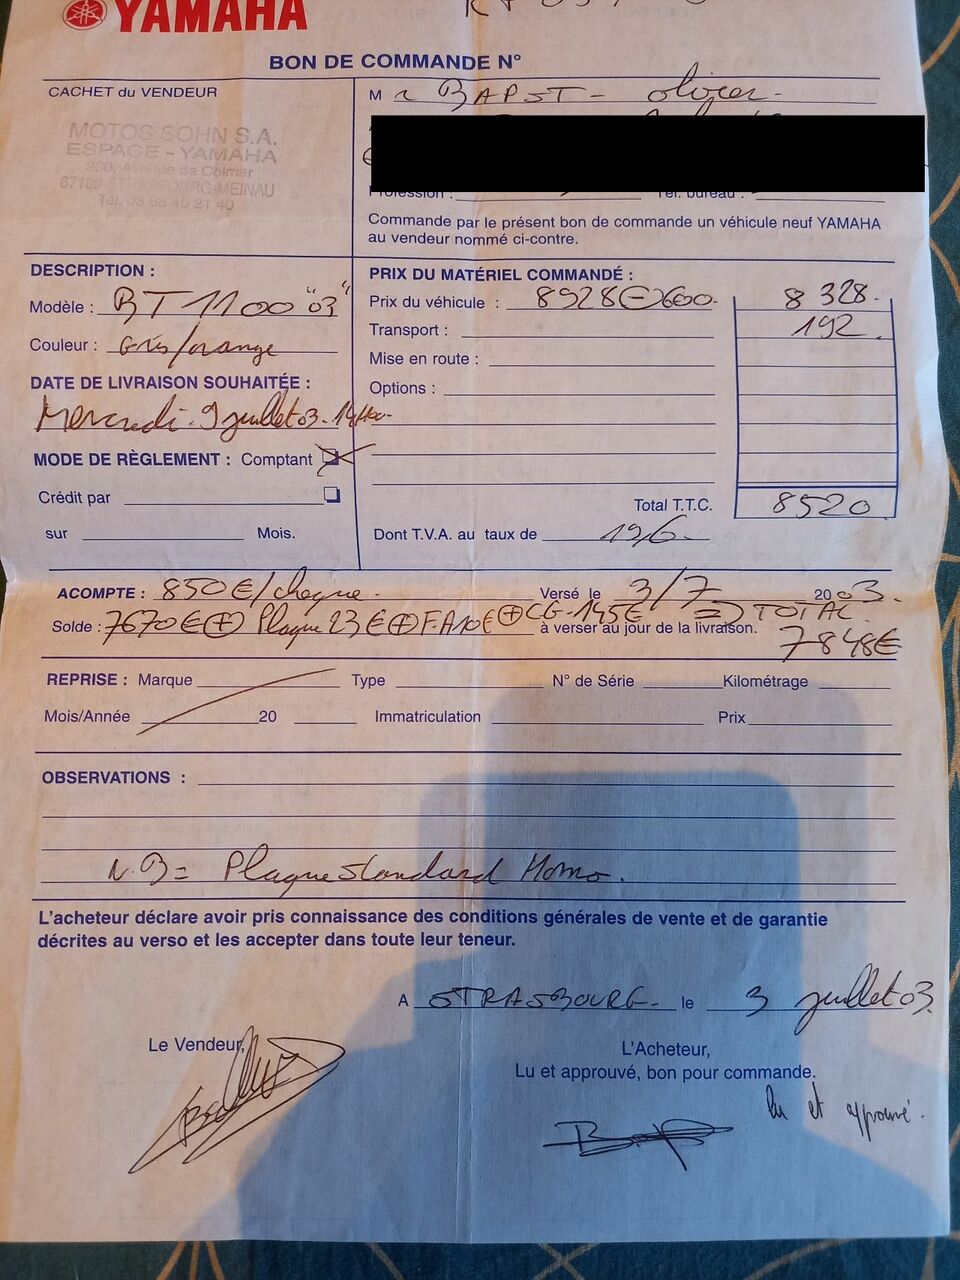 YAMAHA
BON DE COMMANDE N°
CACHET du VENDEUR
MOTOS SOHN S.A.
ESPACE - YAMAHA
230, Avenue de Colmar
67100 STRASBOURG-MEINAU
Tél. 03 88 40 21 40
M r BAPST - Olivier -
Profession : Tél. bureau :
Commande par le présent bon de commande un véhicule neuf YAMAHA
au vendeur nommé ci-contre.
DESCRIPTION :
Modèle : BT 1100 "03"
Couleur : Gris/orange
DATE DE LIVRAISON SOUHAITÉE :
Mercredi 9 juillet 03 - 14H00-
MODE DE RÈGLEMENT : Comptant
Crédit par
sur Mois.
PRIX DU MATÉRIEL COMMANDÉ :
Prix du véhicule : 8928 ⊖ 600- 8 328-
Transport : 192 -
Mise en route :
Options :
Total T.T.C. 8520
Dont T.V.A. au taux de 19,6-
ACOMPTE : 850€/chèque - Versé le 3/7 2003.
Solde : 7670€ ⊕ Plaque 23€ ⊕ F.A 10€ ⊕ CG-145€ => TOTAL
à verser au jour de la livraison. 7848€
REPRISE : Marque Type N° de Série Kilométrage
Mois/Année 20 Immatriculation Prix
OBSERVATIONS :
N.B = Plaque Standard Homo.
L'acheteur déclare avoir pris connaissance des conditions générales de vente et de garantie
décrites au verso et les accepter dans toute leur teneur.
A STRASBOURG - le 3 juillet 03
Le Vendeur,
L'Acheteur,
Lu et approuvé, bon pour commande.
lu et approuvé.